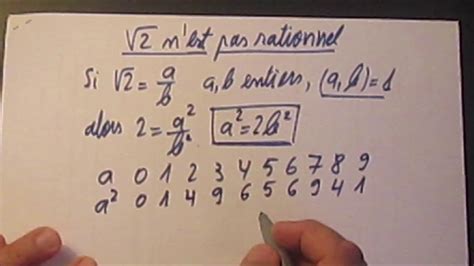 √2 n'est pas rationnel
Si √2 = a/b   a, b entiers, (a, b) = 1
alors 2 = a²/b²   a² = 2b²
a 0 1 2 3 4 5 6 7 8 9
a² 0 1 4 9 6 5 6 9 4 1